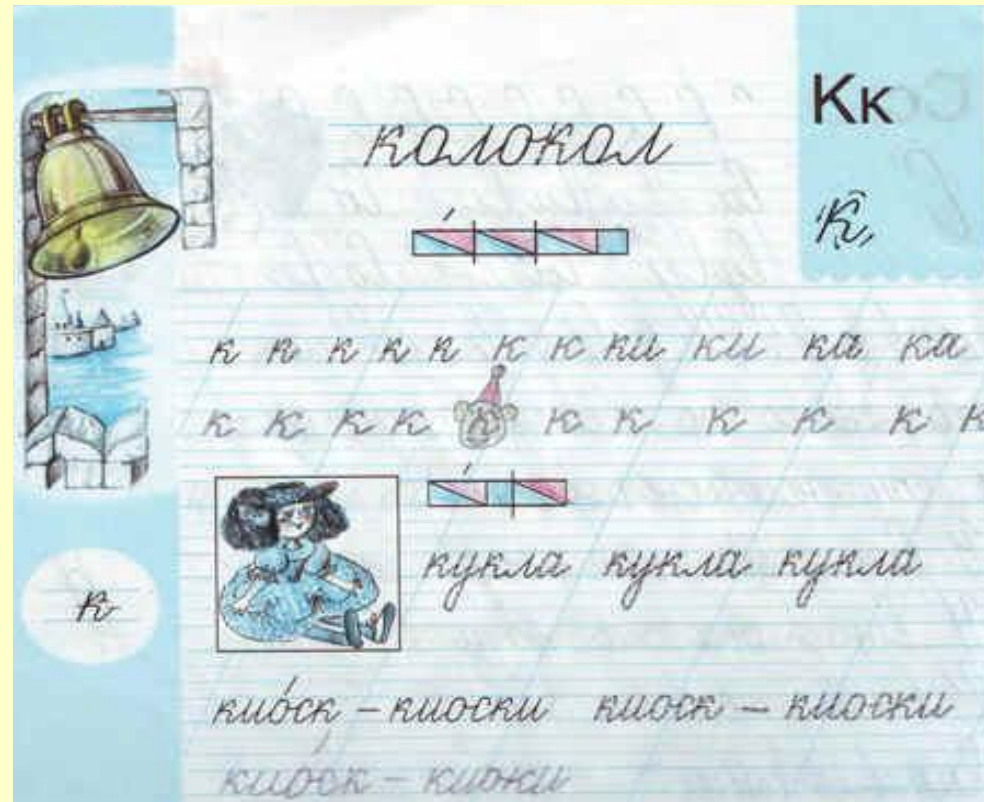 Кк
колокол
К
к к к к к к к ки ки ка ка
к к к к к к к к к к к
кукла кукла кукла
к
кио́ск – киоски киоск – киоски
кио́ск –